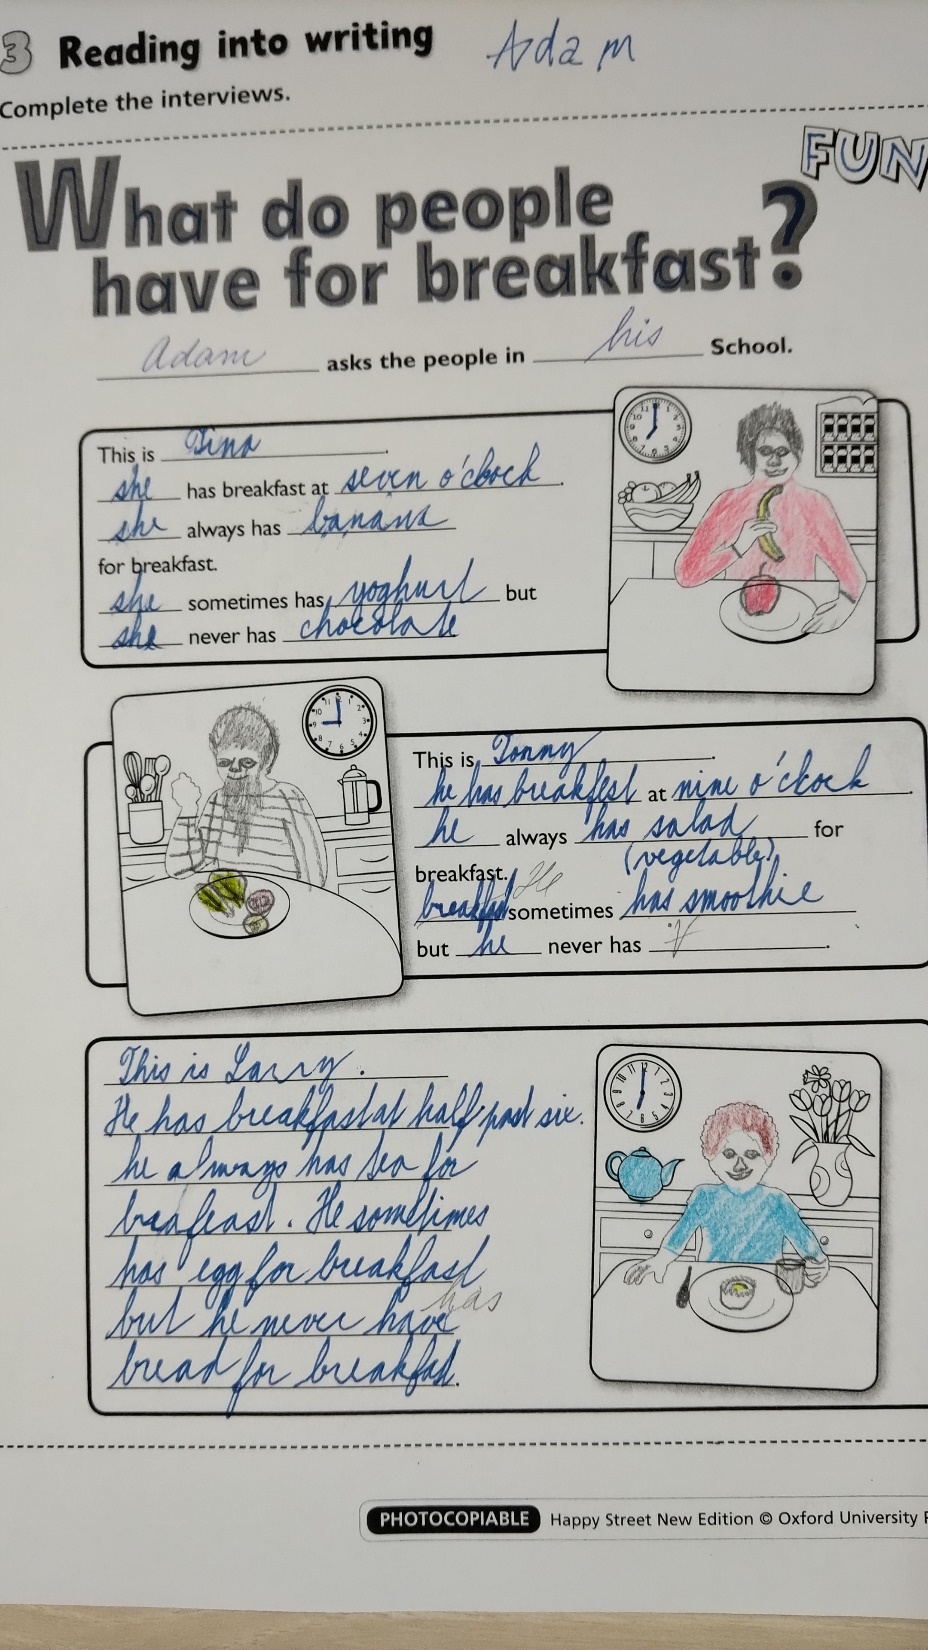 3 Reading into writing Adam
Complete the interviews.
FUN
What do people
have for breakfast?
Adam asks the people in his School.
This is Tina.
she has breakfast at seven o'clock.
she always has banana
for breakfast.
she sometimes has yoghurt but
she never has chocolate
This is Tonny.
he has breakfest at nine o'clock.
he always has salad for
(vegetable)
breakfast. He
breakfast sometimes has smoothie
but he never has .
This is Larry.
He has breakfast at half past six.
he always has tea for
breafeast. He sometimes
has egg for breakfast
has
but he never have
bread for breakfast.
PHOTOCOPIABLE Happy Street New Edition © Oxford University